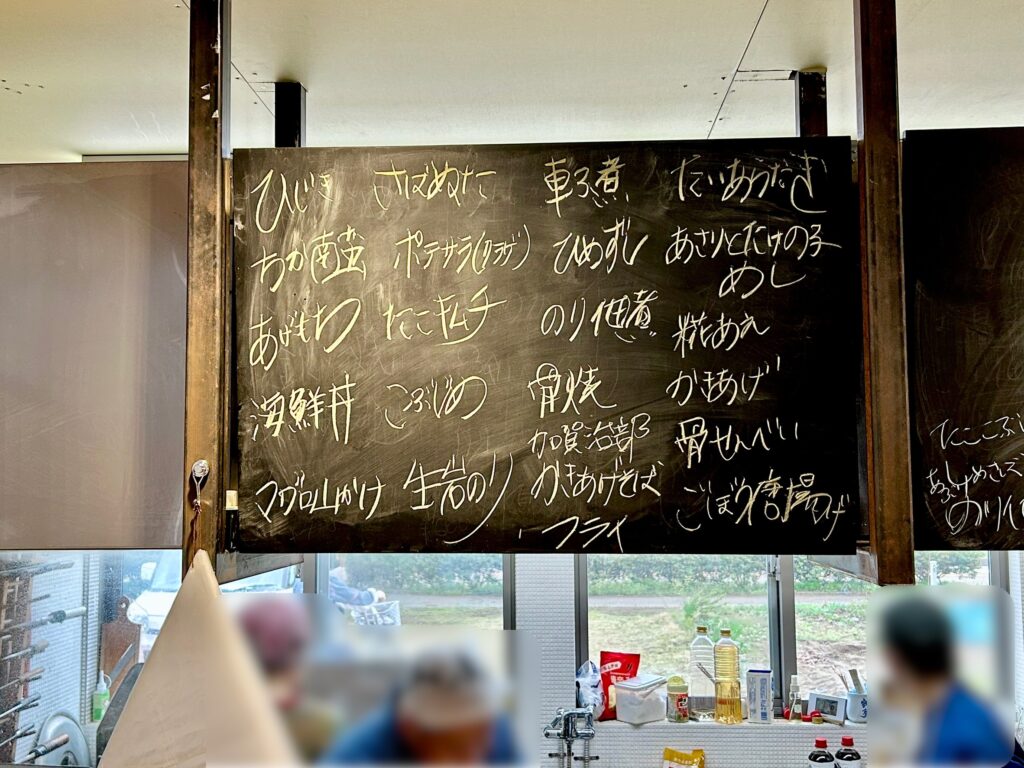 ひじき
さばぬた
車子煮
たいあらだき
ちか南蛮
ポテサラ(クラゲ)
ひめずし
あさりとたけの子
めし
あげもち
たこキムチ
のり佃煮
糀あえ
海鮮丼
こぶじめ
骨焼
かきあげ
加賀治部
骨せんべい
マグロ山かけ
生岩のり
かきあげそば
ごぼう唐揚げ
フライ
たここぶじ